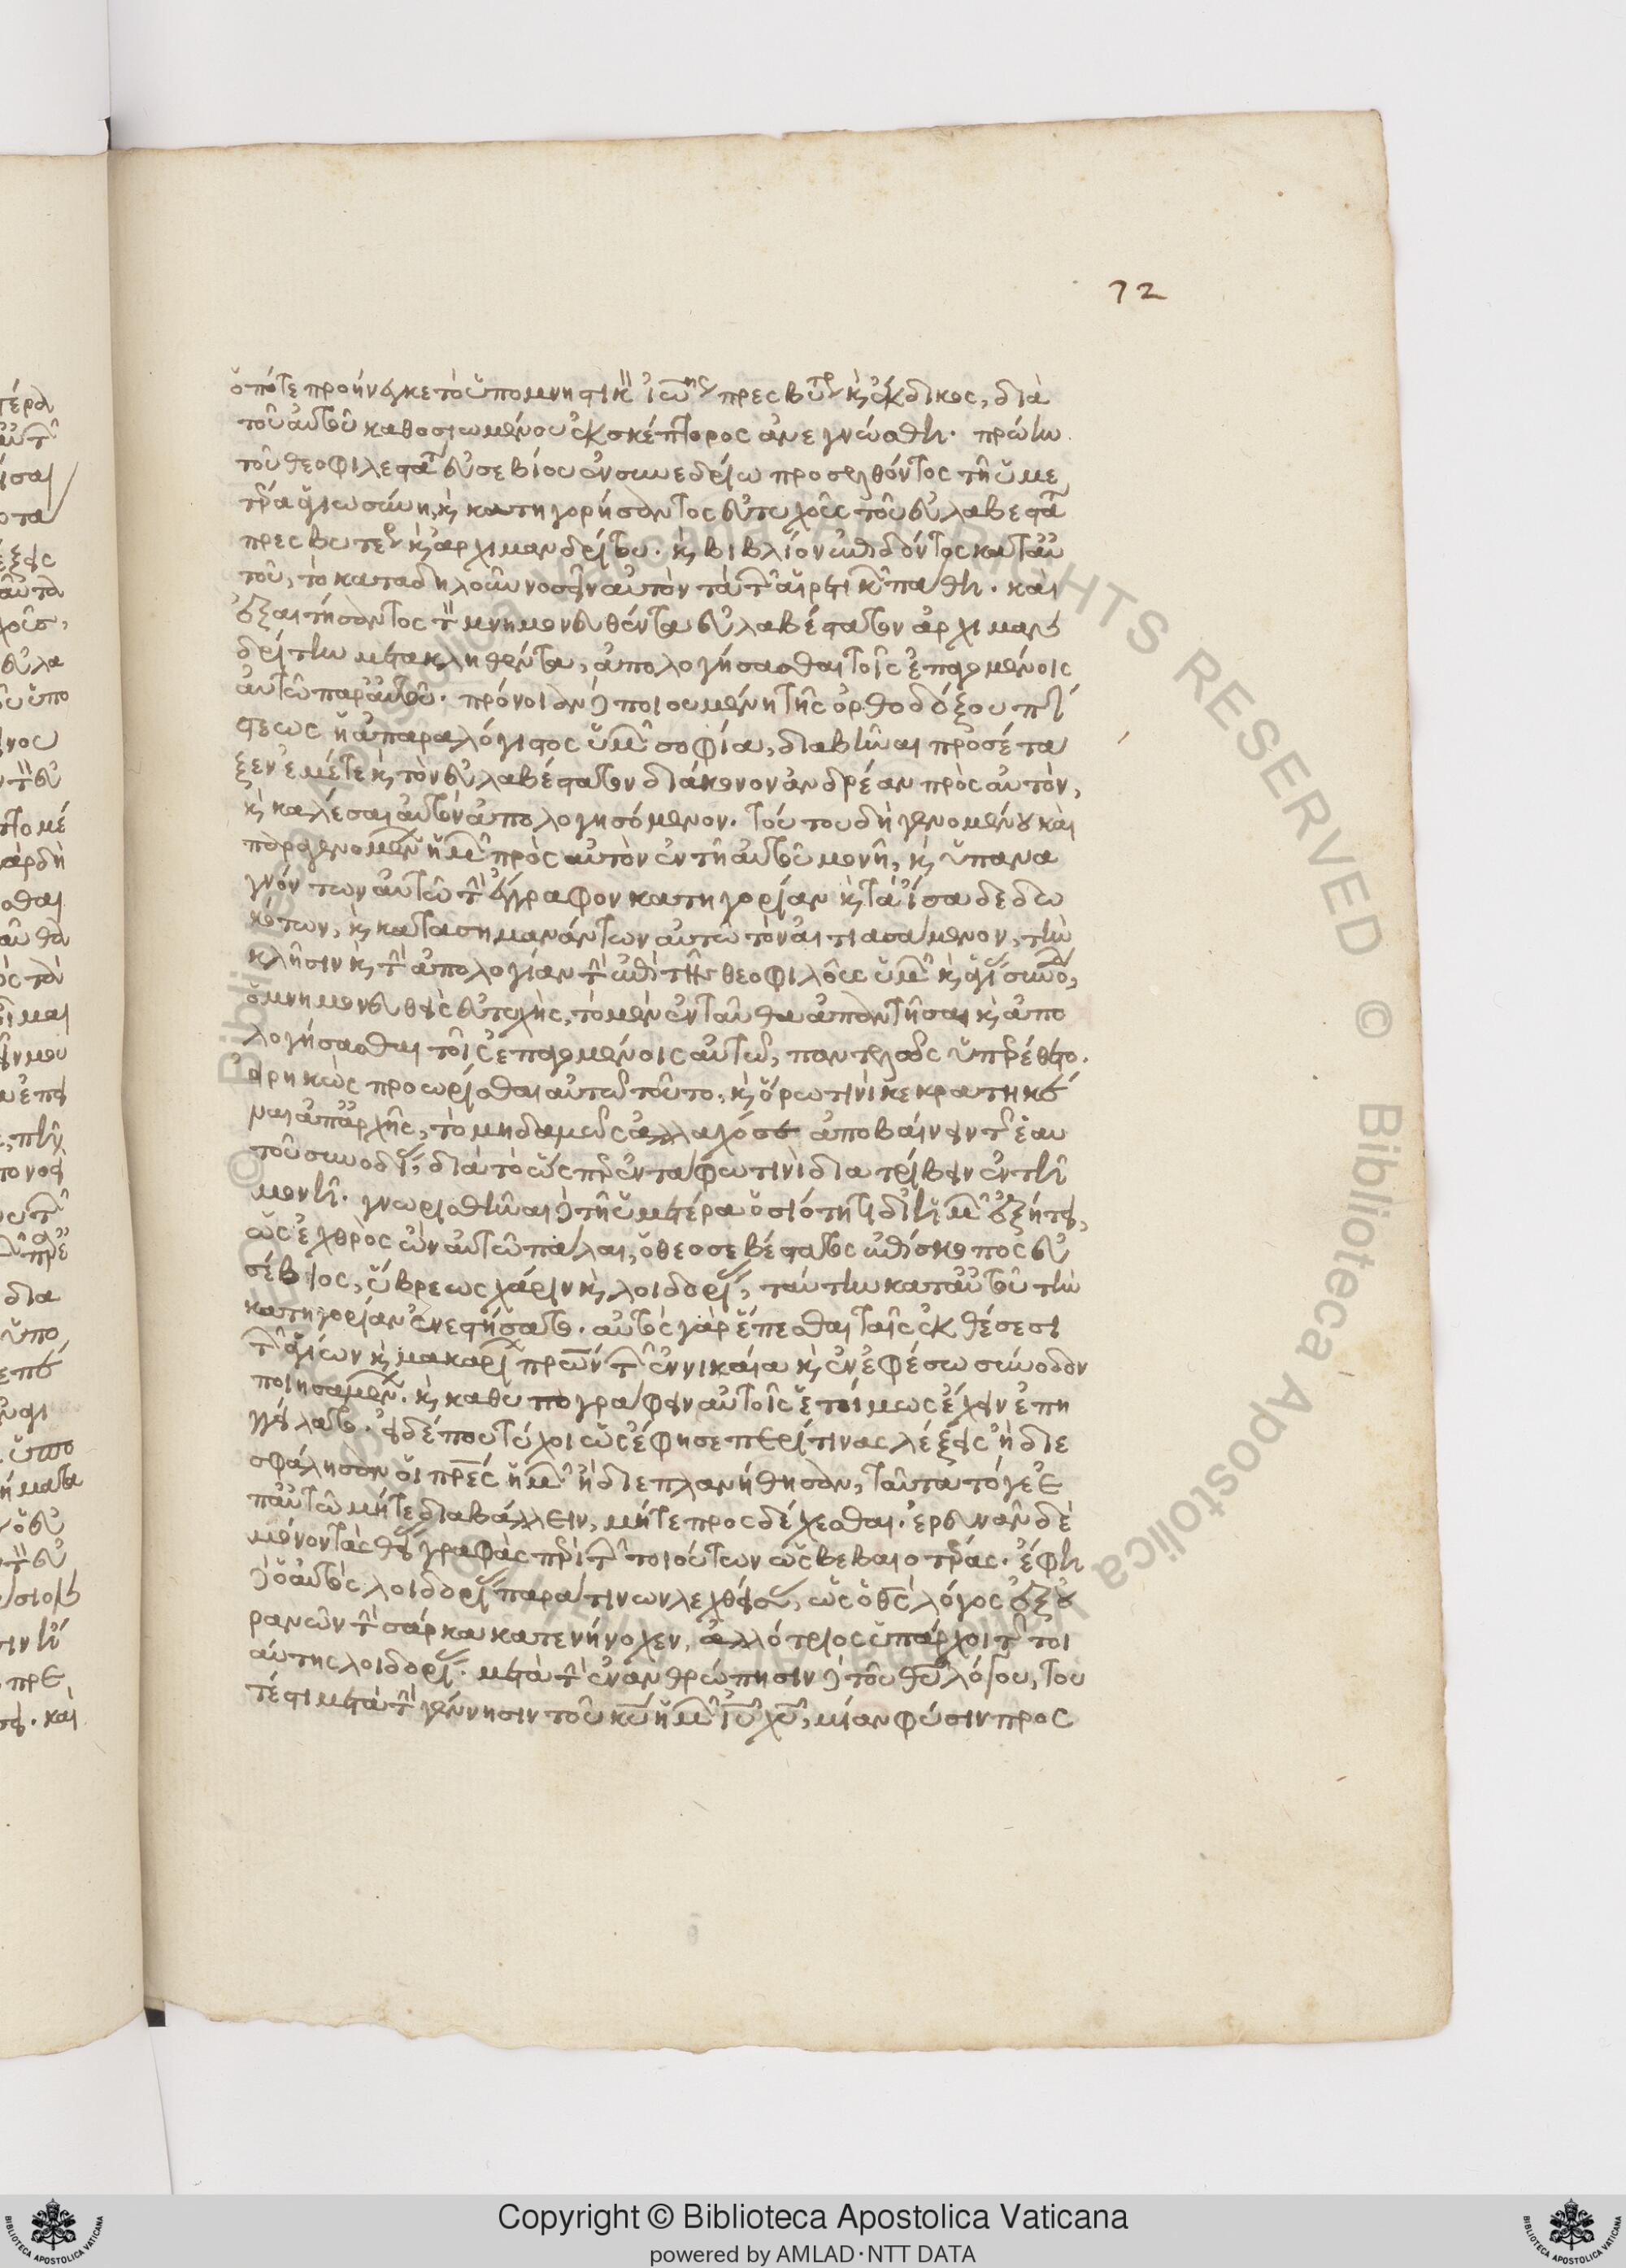 72
ὁπότε προήνεγκε τὸ ὑπομνηστικὸν ἰωάννης πρεσβύτερος καὶ ἔκδικος, διὰ
τοῦ αὐτοῦ καθοσιωμένου ἐκσκέπτορος ἀνεγνώσθη. πρώην
τοῦ θεοφιλεστάτου εὐσεβίου ἐν συνεδρίω προσελθόντος τῇ ὑμε
τέρα ἁγιωσύνη, καὶ κατηγορήσαντος εὐτυχοῦς τοῦ εὐλαβεστάτου
πρεσβυτέρου καὶ ἀρχιμανδρίτου. καὶ βιβλίον ἐπιδόντος κατ' αὐ
τοῦ, τὸ καταδηλοῦν νοσεῖν αὐτὸν τὰ τῶν αἱρετικῶν πάθη. καὶ
ἐξαιτήσαντος τὸν μνημονευθέντα εὐλαβέστατον ἀρχιμαν
δρίτην μετακληθέντα, ἀπολογήσασθαι τοῖς ἐπαγομένοις
αὐτῶ παρ' αὐτοῦ. πρόνοιαν δὲ ποιουμένη τῆς ὀρθοδόξου πί
στεως ἡ ἀπαραλόγιστος ὑμῶν σοφία, διαβῆναι προσέτα
ξεν ἐμέ τε καὶ τὸν εὐλαβέστατον διάκονον ἀνδρέαν πρὸς αὐτὸν,
καὶ καλέσαι αὐτὸν ἀπολογησόμενον. τούτου δὴ γενομένου καὶ
παραγενομένων ἡμῶν πρὸς αὐτὸν ἐν τῇ αὐτοῦ μονῇ, καὶ ὑπανα
γνόντων αὐτῶ τὴν ἔγγραφον κατηγορίαν καὶ τὰ ἴσα δεδω
κότων, καὶ κατασημανάντων αὐτῶ τὸν αἰτιασάμενον, τὴν
κλῆσιν καὶ τὴν ἀπολογίαν τὴν ἐπὶ τῆς θεοφιλοῦς ὑμῶν καὶ ἁγίας συνόδου,
ὁ μνημονευθεὶς εὐτυχὴς, τὸ μὲν ἐνταῦθα ἀπαντῆσαι καὶ ἀπο
λογήσασθαι τοῖς ἐπαγομένοις αὐτῶ, παντελῶς ὑπερέθετο.
εἰρηκὼς προωρίσθαι αὐτῶ τοῦτο, καὶ ὅρω τινὶ κεκρατηκέ
ναι ἀπ' ἀρχῆς, τὸ μηδαμῶς ἀλλαχόσε ἀποβαίνειν τῆς ἑαυ
τοῦ συνοδίας, διὰ τὸ ὥσπερ ἐν τάφω τινὶ διατρίβειν ἐν τῇ
μονῇ. γνωρισθῆναι δὲ τῇ ὑμετέρα ὁσιότητι δι' ἡμῶν ἐξήτει,
ὡς ἐχθρὸς ὢν αὐτῶ πάλαι, ὁ θεοσεβέστατος ἐπίσκοπος εὐ
σέβιος, ὕβρεως χάριν καὶ λοιδορίας, ταύτην κατ' αὐτοῦ τὴν
κατηγορίαν ἐνεστήσατο. αὐτὸς γὰρ ἕπεσθαι ταῖς ἐκθέσεσι
τῶν ἁγίων καὶ μακαρίων πρων τῶν ἐν νικαία καὶ ἐν ἐφέσω σύνοδον
ποιησαμένων. καὶ καθυπογράφειν αὐτοῖς ἑτοίμως ἔχειν ἐπη
γγείλατο. εἰ δέ που τύχοι ὡς ἔφησε περί τινας λέξεις ἢ διε
σφάλησαν οἱ πρες ἡμῶν ἢ διεπλανήθησαν, ταῦτα τό γε ἐ
π' αὐτῶ μήτε διαβάλλειν, μήτε προσδέχεσθαι. ἐρευνᾶν δὲ
μόνον τὰς θείας γραφὰς περὶ τῶν τοιούτων ὡς βεβαιοτέρας. ἔφη
δὲ ὁ αὐτὸς λοιδορίας παρά τινων λεχθείσας, ὡς ὁ θς λόγος ἐξ οὐ
ρανῶν τὴν σάρκα κατενήνοχεν, ἀλλότριος ὑπάρχοι τῆς τοι
αύτης λοιδορίας. μετὰ τὴν ἐνανθρώπησιν δὲ τοῦ θυ λόγου, του
τέστι μετὰ τὴν γέννησιν τοῦ κυ ἡμῶν ιυ χυ, μίαν φύσιν προς
Copyright © Biblioteca Apostolica Vaticana
powered by AMLAD·NTT DATA